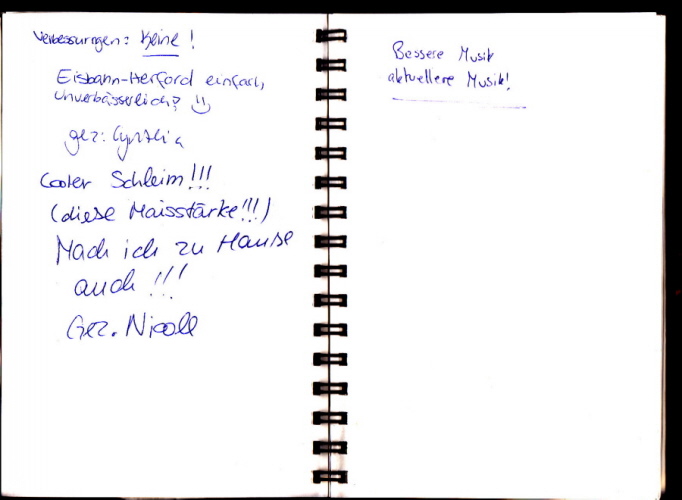 Verbessurngen: Keine!
Eisbahn-Herford einfach,
unverbässerlich?
gez: Cynthia
Cooler Schleim!!!
(diese Maisstärke!!!)
Mach ich zu Hause
auch!!!
Gez. Nicole
Bessere Musik
aktuellere Musik!